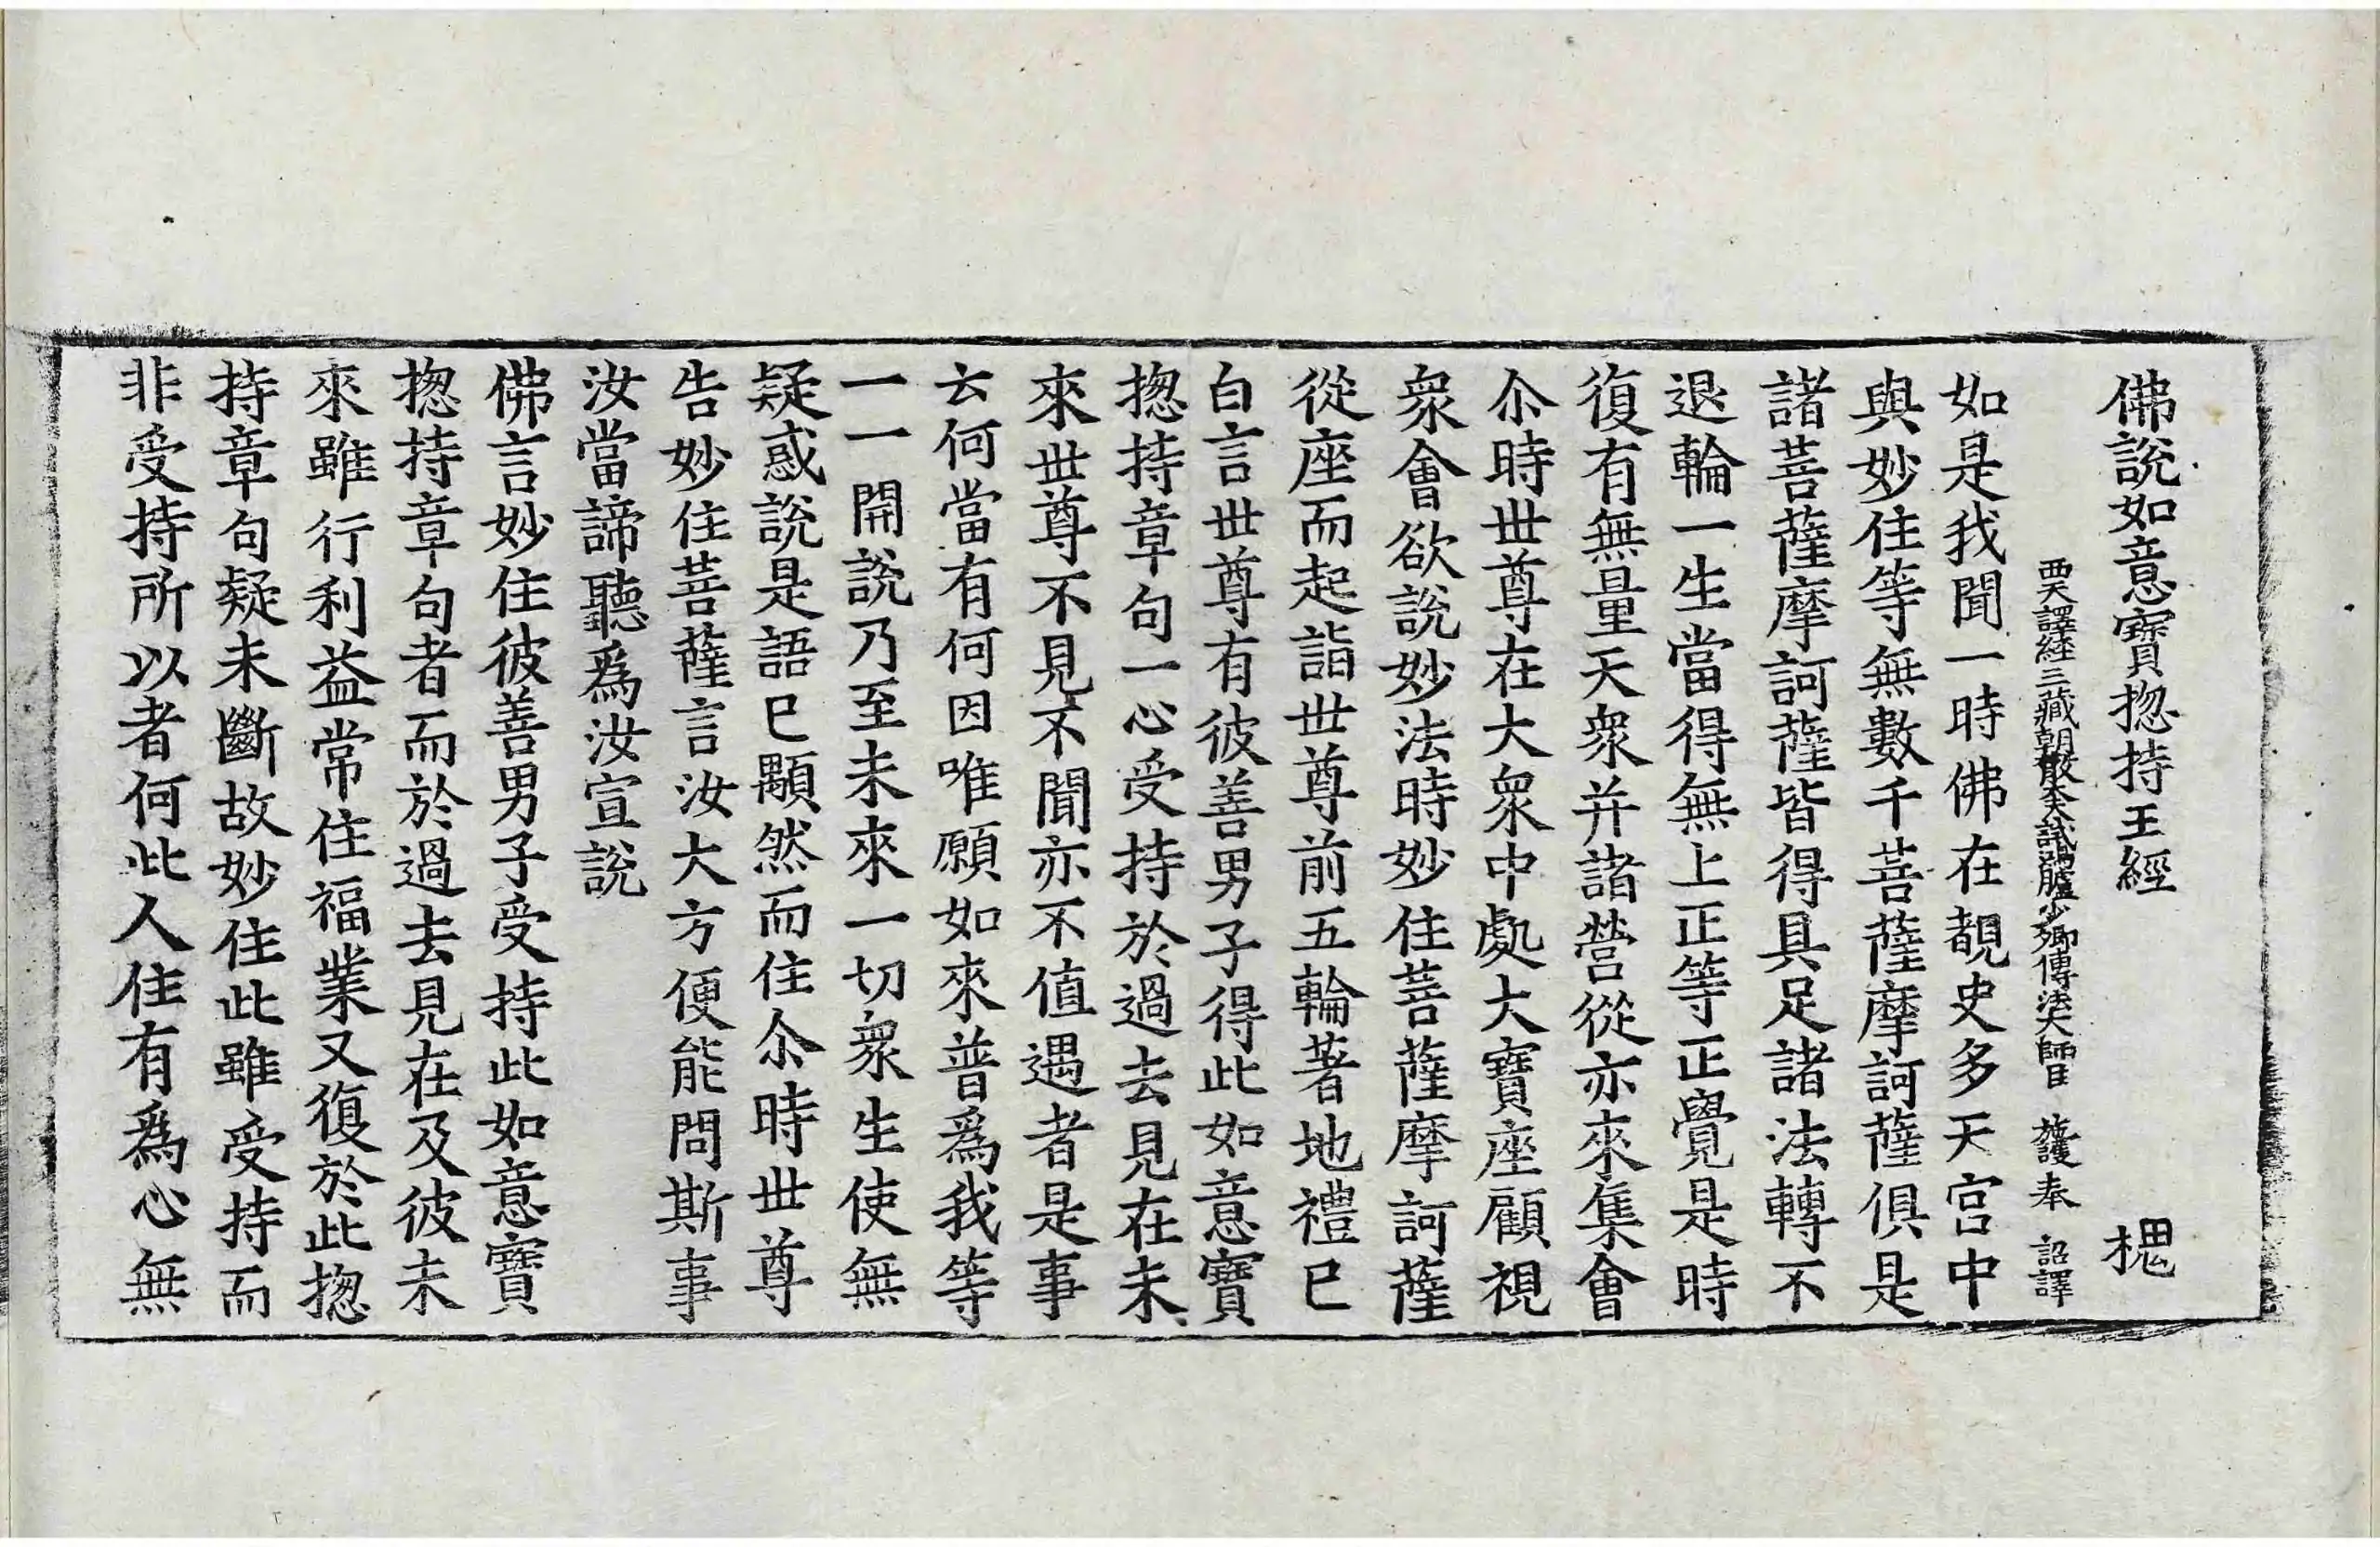 佛說如意寶揔持王經 槐
西天譯經三藏朝散大夫試鴻臚少卿傳法大師臣 施護奉 詔譯
如是我聞一時佛在覩史多天宮中
與妙住等無數千菩薩摩訶薩俱是
諸菩薩摩訶薩皆得具足諸法轉不
退輪一生當得無上正等正覺是時
復有無量天衆并諸營從亦來集會
尒時世尊在大衆中處大寶座顧視
衆會欲說妙法時妙住菩薩摩訶薩
從座而起詣世尊前五輪著地禮已
白言世尊有彼善男子得此如意寶
揔持章句一心受持於過去見在未
來世尊不見不聞亦不值遇者是事
云何當有何因唯願如來普爲我等
一一開說乃至未來一切衆生使無
疑惑說是語已顒然而住尒時世尊
告妙住菩薩言汝大方便能問斯事
汝當諦聽爲汝宣說
佛言妙住彼善男子受持此如意寶
揔持章句者而於過去見在及彼未
來雖行利益常住福業又復於此揔
持章句疑未斷故妙住此雖受持而
非受持所以者何此人住有爲心無